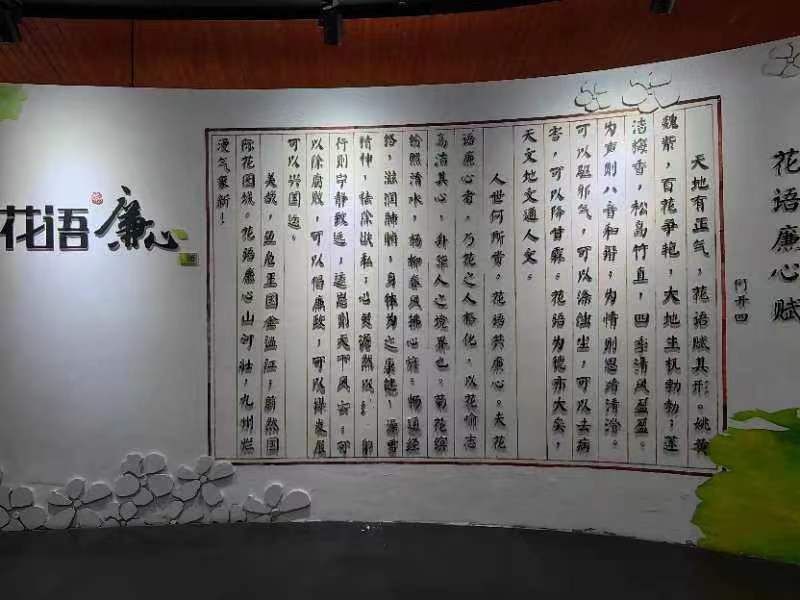 花语廉心赋
何开四
天地有正气，花语赋其形。姚黄
魏紫，百花争艳，大地生机勃勃；莲
洁梅香，松高竹直，四季清风盈盈。
为声则八音和谐；为情则思绪清澄。
可以驱邪气，可以涤浊尘，可以去病
害，可以降甘霖。花语为德亦大矣，
天文地文通人文。
人世何所贵，花语共廉心。夫花
语廉心者，乃花之人格化，以花喻志
高洁其心，人之境界也。菊花
照清水，杨柳春风拂心旌；畅通经
络，滋润肺腑，身体为之康健；澡雪
精神，祛除欲私，心灵
行则宁静致远，远思则天下风云；可
以除腐败，可以倡廉政，可以发展
可以兴国运。
美哉，鱼凫王国金温江，蔚然国
际花园城。花语廉心山河壮，九州烂
漫气象新！
花语廉心